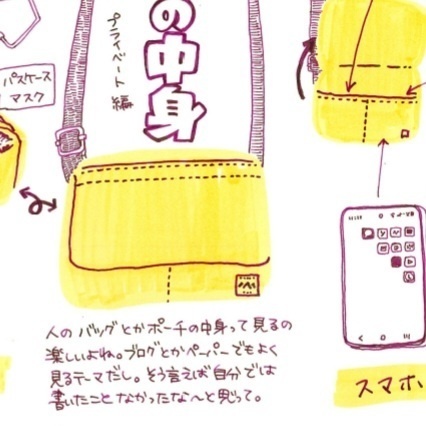 の中身
プライベート編
パスケース
マスク
人のバッグとかポーチの中身って見るの
楽しいよね。ブログとかペーパーでもよく
見るテーマだし。そう言えば自分では
書いたことなかったな〜と思って。
スマホ